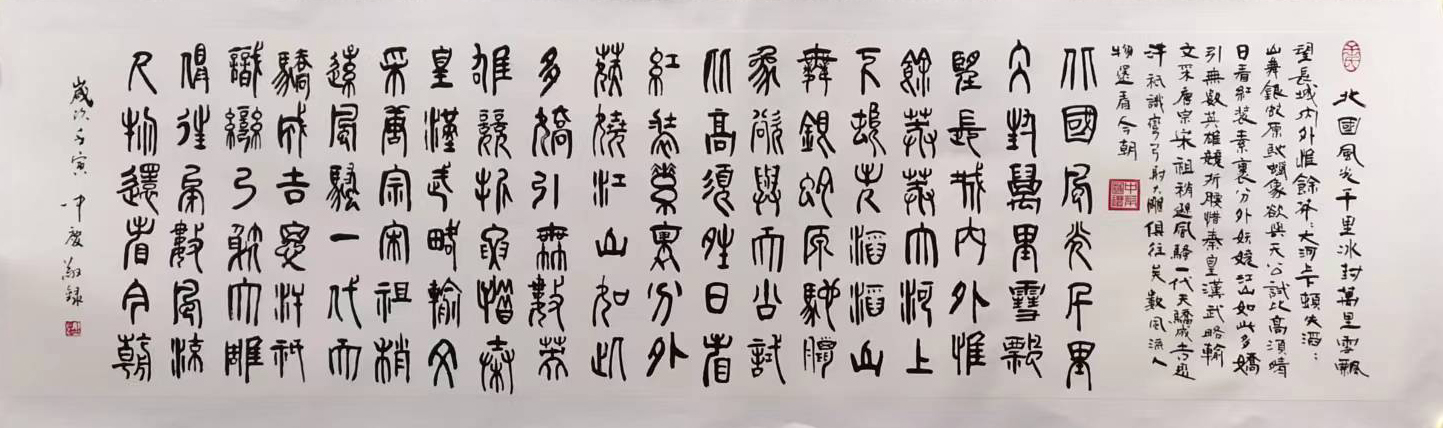 北國風光千里冰封萬里雪飄
望長城內外惟餘莽:大河上下頓失滔:
山舞銀蛇原馳蠟像欲與天公試比高須晴
日看紅裝素裹分外妖嬈江山如此多嬌
引無數英雄競折腰惜秦皇漢武略輸
文采唐宗宋祖稍遜風騷一代天驕成吉思
汗祇識彎弓射大雕俱往矣數風流人
物還看今朝
北國風光千里
冰封萬里雪飄
望長城內外惟
餘莽莽大河上
下頓失滔滔山
舞銀蛇原馳臘
象欲與天公試
比高須晴日看
紅裝素裹分外
妖嬈江山如此
多嬌引無數英
雄競折腰惜秦
皇漢武略輸文
采唐宗宋祖稍
遜風騷一代天
驕成吉思汗祇
識彎弓射大雕
俱往矣數風流
人物還看今朝
歲次壬寅 中慶敬錄